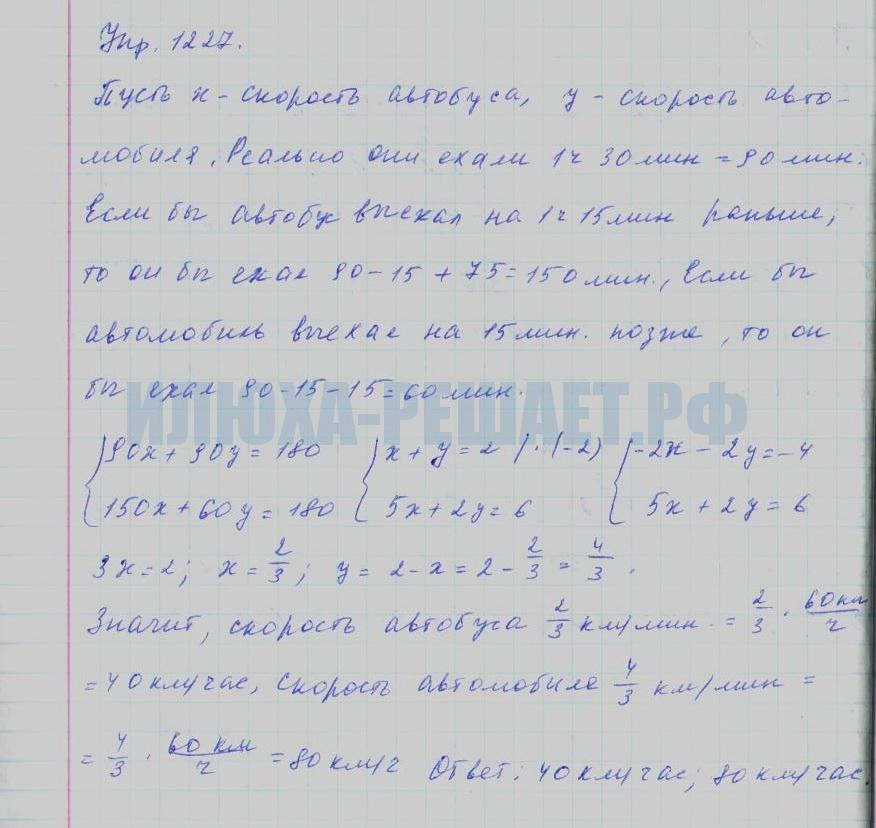 Упр. 1227.
Пусть х - скорость автобуса, у - скорость авто-
мобиля. Реально они ехали 1ч 30мин = 90мин.
Если бы автобус выехал на 1ч 15мин раньше,
то он бы ехал 90-15+75=150мин., Если бы
автомобиль выехал на 15мин. позже, то он
бы ехал 90-15-15=60мин.
ИЛЮХА-РЕШАЕТ.РФ
{90х+90у=180 {х+у=2 |·(-2) {-2х-2у=-4
150х+60у=180 5х+2у=6 5х+2у=6
3х=2; х=2/3; у=2-х=2-2/3=4/3.
Значит, скорость автобуса 2/3 км/мин.=2/3·60км/ч
=40км/час, скорость автомобиля 4/3 км/мин=
=4/3·60км/ч=80км/ч Ответ: 40км/час; 80км/час.